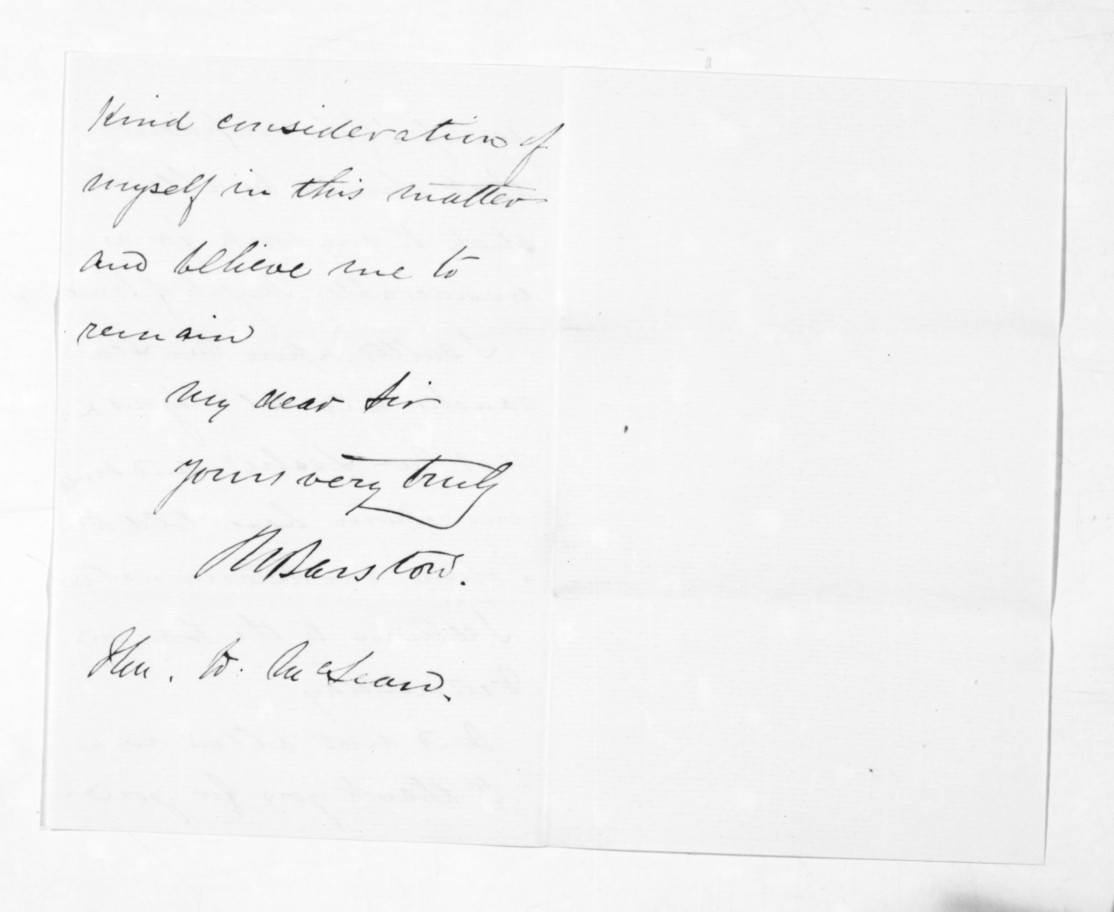 Kind consideration of
myself in this matter
and believe me to
remain
My dear Sir
yours very truly
Barstow.
Hon. D. McLean.